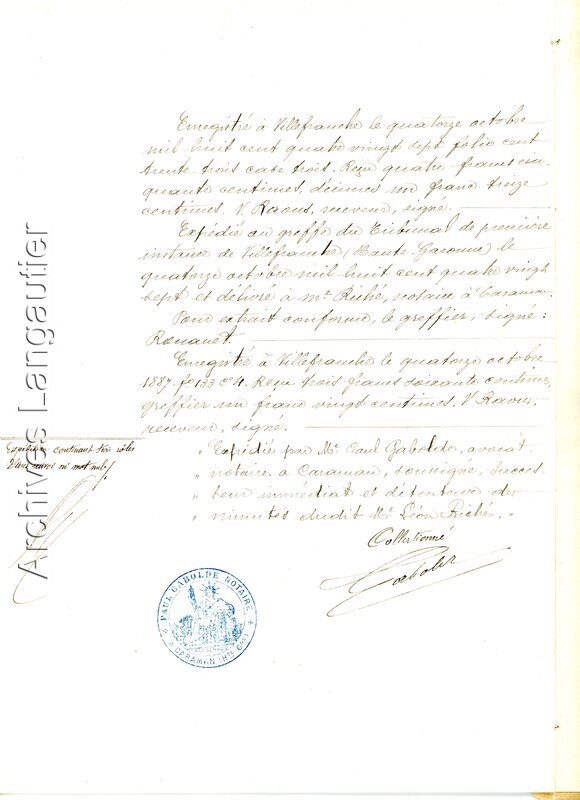 Enregistré à Villefranche le quatorze octobre
mil huit cent quatre vingt sept folio cent
trente trois case trois. Reçu quatre francs cin-
quante centimes, décimes un franc treize
centimes. V. Raous, receveur, signé.
Expédié au greffe du Tribunal de première
instance de Villefranche (Haute-Garonne) le
quatorze octobre mil huit cent quatre vingt
sept et délivré à Me Riché, notaire à Caraman.
Pour extrait conforme, le greffier, signé :
Rouanet.
Enregistré à Villefranche le quatorze octobre
1887 fo 133 c 4. Reçu trois francs soixante centimes,
greffier un franc vingt centimes. V. Raous,
receveur, signé.
Expédition contenant
ni mot nul
" Expédiée par Me Paul Gabolde, avocat,
" notaire à Caraman, soussigné, succes
" seur immédiat et détenteur des
" minutes dudit Me Léon Riché. "
Collationné
Gabolde
PAUL GABOLDE NOTAIRE
A CARAMAN (Hte Gne)
Archives Langautier